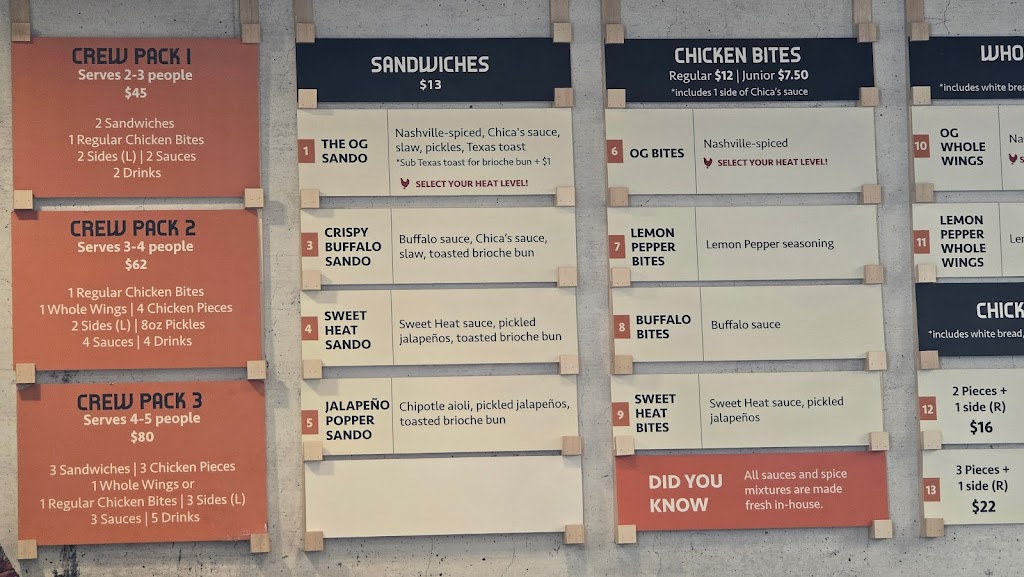 CREW PACK 1
Serves 2-3 people
$45
2 Sandwiches
1 Regular Chicken Bites
2 Sides (L) | 2 Sauces
2 Drinks
CREW PACK 2
Serves 3-4 people
$62
1 Regular Chicken Bites
1 Whole Wings | 4 Chicken Pieces
2 Sides (L) | 8oz Pickles
4 Sauces | 4 Drinks
CREW PACK 3
Serves 4-5 people
$80
3 Sandwiches | 3 Chicken Pieces
1 Whole Wings or
1 Regular Chicken Bites | 3 Sides (L)
3 Sauces | 5 Drinks
SANDWICHES
$13
1
THE OG
SANDO
Nashville-spiced, Chica's sauce,
slaw, pickles, Texas toast
*Sub Texas toast for brioche bun + $1
SELECT YOUR HEAT LEVEL!
3
CRISPY
BUFFALO
SANDO
Buffalo sauce, Chica's sauce,
slaw, toasted brioche bun
4
SWEET
HEAT
SANDO
Sweet Heat sauce, pickled
jalapeños, toasted brioche bun
5
JALAPEÑO
POPPER
SANDO
Chipotle aioli, pickled jalapeños,
toasted brioche bun
CHICKEN BITES
Regular $12 | Junior $7.50
*includes 1 side of Chica's sauce
6
OG BITES
Nashville-spiced
SELECT YOUR HEAT LEVEL!
7
LEMON
PEPPER
BITES
Lemon Pepper seasoning
8
BUFFALO
BITES
Buffalo sauce
9
SWEET
HEAT
BITES
Sweet Heat sauce, pickled
jalapeños
DID YOU
KNOW
All sauces and spice
mixtures are made
fresh in-house.
WHO
*includes white brea
10
OG
WHOLE
WINGS
Na
11
LEMON
PEPPER
WHOLE
WINGS
Ler
CHICK
*includes white bread,
12
2 Pieces +
1 side (R)
$16
13
3 Pieces +
1 side (R)
$22